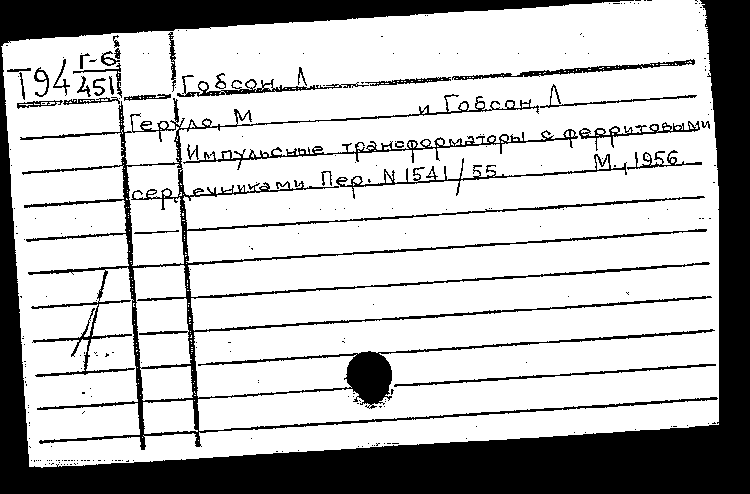 Т94 Г-6
451
Гобсон, Л
Геруло, М и Гобсон, Л
Импульсные трансформаторы с ферритовыми
сердечниками. Пер. N 1541/55. М., 1956.